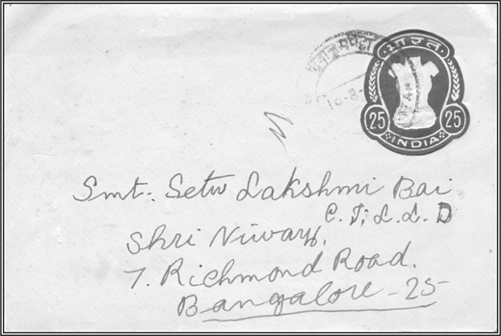 भारत
25 25
INDIA
Smt. Setu Lakshmi Bai
C. I; L. L. D
Shri Niwas,
7. Richmond Road.
Bangalore - 25